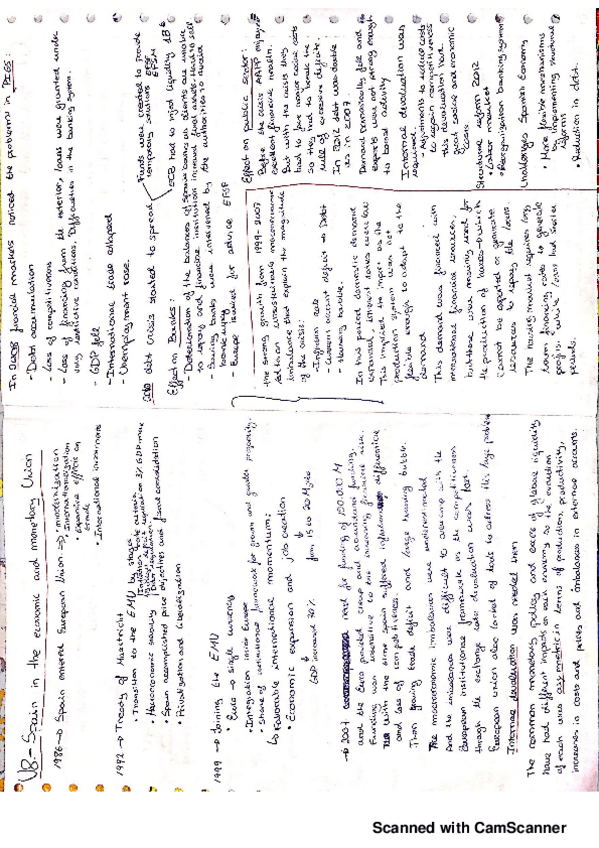 U8.- Spain in the economic and monetary Union
1986 → Spain entered European Union → modernitzation
Internationalization
Expansive effect on
trade
International investments
1992 → Treaty of Maastricht
Transition to the EMU
Macroeconomic stability
Spain accomplished price objectives and fiscal consolidation
Privatization and liberalization
1999 → Joining the EMU
Euro → single currency
Integration inside Europe
Share of institutional framework for growth and greater prosperity.
↳ Favorable international momentum:
Economic expansion and job creation
GDP increased 70%
from 15 to 20 M jobs
→ 2007 need for funding of
and the Euro provided cheap and abundant funding.
Funding was insensitive to the increasing financial risk.
with the time Spain suffered inflation differential
and loss of competitiveness.
Then growing trade deficit and large housing bubble.
The macroeconomic imbalances were underestimated
And the imbalances were difficult to accomp with the
European institutional framework as the competitiveness
through the exchange rate devaluation wasn't fast.
European union also lacked of tools to adress this large problem
Internal devaluation was needed then
The common monetary policy and excess of global liquidity
have had different impacts on each economy as the evolution
of each was asymmetric in terms of production, productivity,
increases in costs and prices and imbalances in external accounts.
In 2008 financial markets noticed the problems in PIGS:
- Debt accumulation
- Loss of competitiveness
- Loss of financing from the exterior, loans were granted under
very restrictive conditions. Difficulties in the banking system.
- GDP fell
- International trade collapsed
- Unemployment rose.
2010 debt crisis started to spread
Funds were created to provide
temporary solutions
EFSF
EFSM
ECB had to inject liquidity
Effect on Banks:
- Deterioration of the balances of Spanish banks as clients are unable
to repay and financial institutions increased fixed assets hard to sell
- Saving banks were intervened by the authorities to avoid
bankruptcy
- Europe asked for advice EFSF
The strong growth from 1999-2007
led to an unsustainable macroeconomic
imbalance that explain the magnitude
of the crisis:
- Inflation rate
- Current account deficit → Debt
- Housing bubble.
In this period domestic demand
expanded, interest rates were low
This implied to import as the
production system was not
flexible enough to adapt to the
demand
This demand was financed with
international financial sources,
but these were mainly used for
the production of houses → which
cannot be exported or generate
resources to repay the loans.
The houses market requires long
term financing to generate
profits while loans had shorter
periods.
Effect on public sector:
Before the crisis AAPP enjoyed
excellent financial health.
But with the crisis they
had to face social costs
so they had to break the
rule of excessive deficits.
In 2012 debt was double
as in 2007
Demand dramatically fell and
exports were not strong enough
to boost activity
Internal devaluation was
required.
- Adjustments to reduce costs
to regain competitiveness
this devaluation had
great social and economic
costs
Structural reform 2012
Labor market
Reorganization banking system
Challenges Spanish Economy
More flexible mechanisms
by implementing structural
reforms
Reduction in debt.
Scanned with CamScanner